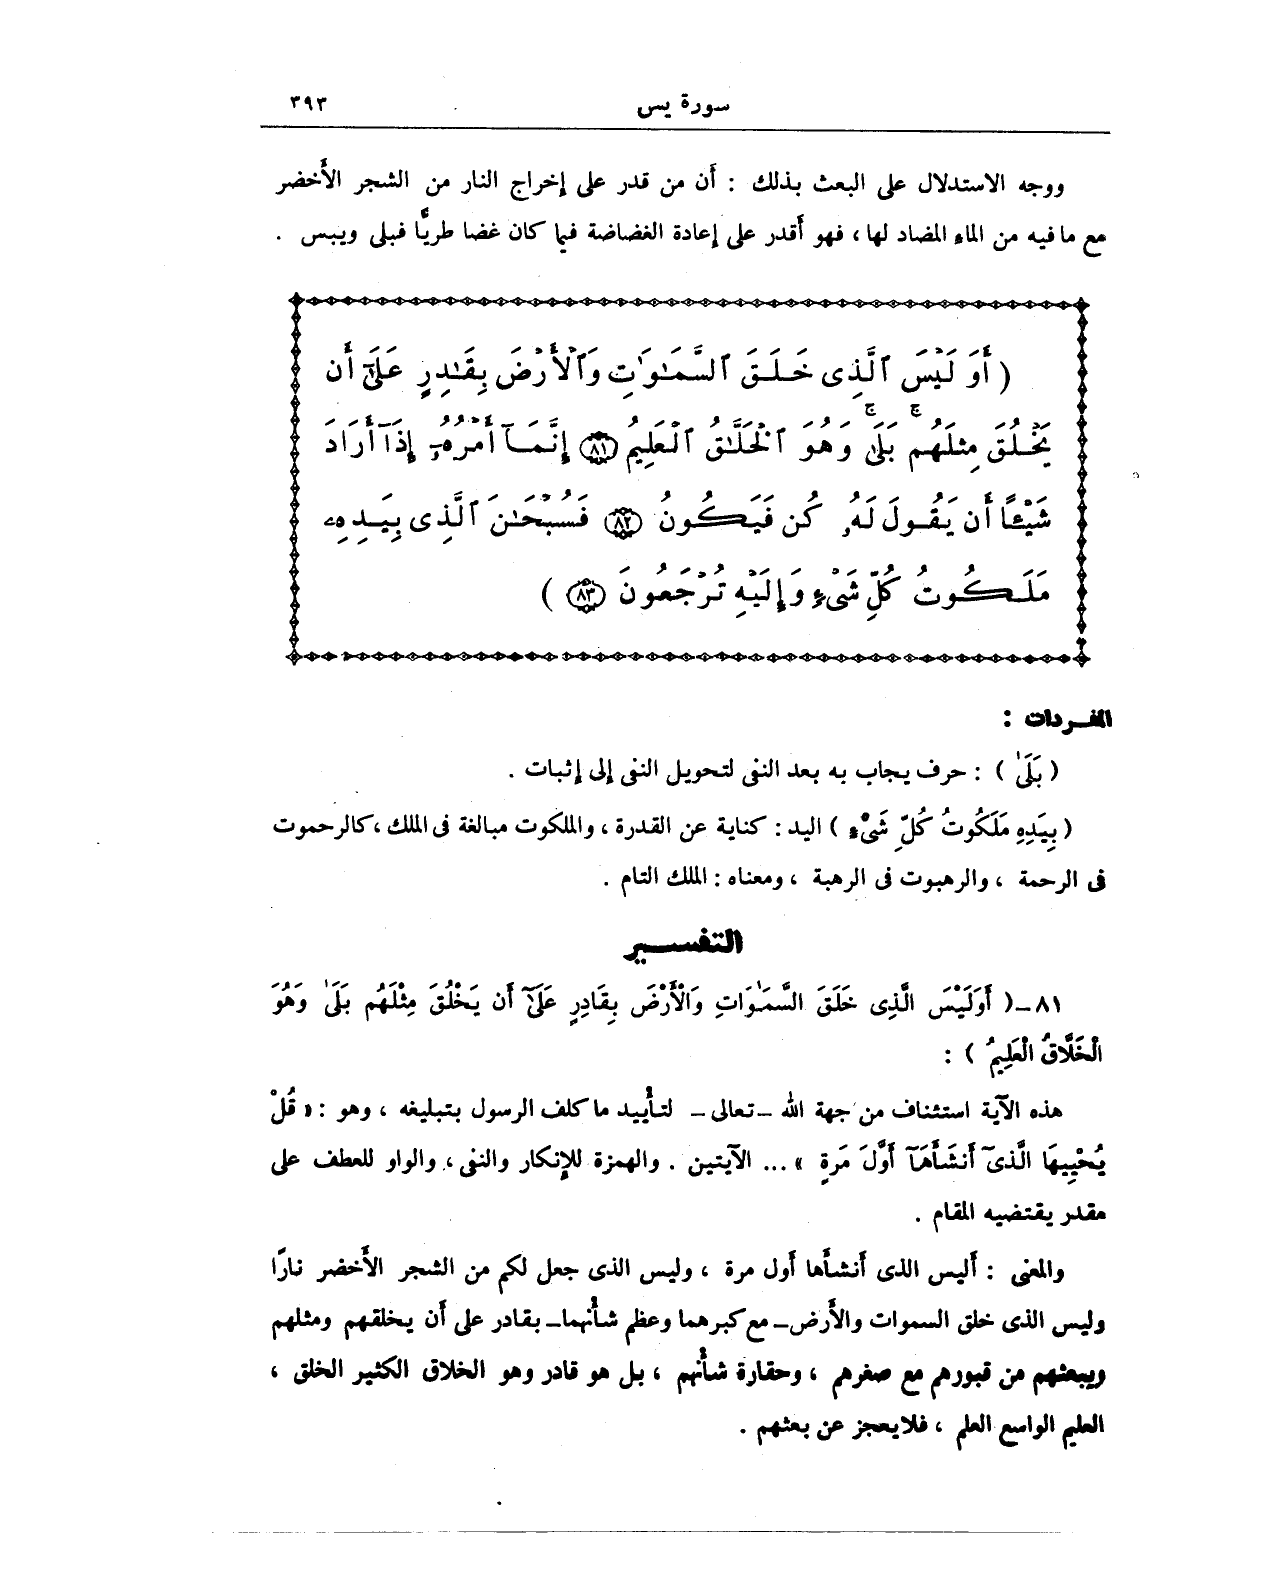 سورة يس ٣٩٣
ووجه الاستدلال على البعث بذلك : أَن من قدر على إخراج النار من الشجر الأَخضر
مع ما فيه من الماء المضاد لها ، فهو أَقدر على إعادة الغضاضة فيما كان غضا طريًّا فبلى ويبس .
( أَوَلَيْسَ ٱلَّذِى خَلَقَ ٱلسَّمَـٰوَٰتِ وَٱلْأَرْضَ بِقَـٰدِرٍ عَلَىٰٓ أَن
يَخْلُقَ مِثْلَهُم ۚ بَلَىٰ ۚ وَهُوَ ٱلْخَلَّـٰقُ ٱلْعَلِيمُ ﴿٨١﴾ إِنَّمَآ أَمْرُهُۥٓ إِذَآ أَرَادَ
شَيْـًٔا أَن يَقُولَ لَهُۥ كُن فَيَكُونُ ﴿٨٢﴾ فَسُبْحَـٰنَ ٱلَّذِى بِيَدِهِۦ
مَلَكُوتُ كُلِّ شَىْءٍ وَإِلَيْهِ تُرْجَعُونَ ﴿٨٣﴾ )
المفـردات :
( بَلَىٰ ) : حرف يجاب به بعد النفى لتحويل النفى إلى إثبات .
( بِيَدِهِ مَلَكُوتُ كُلِّ شَىْءٍ ) اليد : كناية عن القدرة ، والملكوت مبالغة فى الملك ، كالرحموت
فى الرحمة ، والرهبوت فى الرهبة ، ومعناه : الملك التام .
التفسـير
٨١ـ ( أَوَلَيْسَ الَّذِى خَلَقَ السَّمَـٰوَاتِ وَالْأَرْضَ بِقَادِرٍ عَلَىٰٓ أَن يَخْلُقَ مِثْلَهُم بَلَىٰ وَهُوَ
الْخَلَّاقُ الْعَلِيمُ ) :
هذه الآية استئناف من جهة الله ـ تعالى ـ لتأْييد ما كلف الرسول بتبليغه ، وهو : « قُلْ
يُحْيِيهَا الَّذِىٓ أَنشَأَهَآ أَوَّلَ مَرةٍ » ... الآيتين . والهمزة للإنكار والنفى ، والواو للعطف على
مقدر يقتضيه المقام .
والمعنى : أَليس الذى أَنشأَها أَول مرة ، وليس الذى جعل لكم من الشجر الأَخضر نارًا
وليس الذى خلق السموات والأَرض ـ مع كبرهما وعظم شأْنهما ـ بقادر على أَن يخلقهم ومثلهم
ويبعثهم من قبورهم مع صغرهم ، وحقارة شأْنهم ، بل هو قادر وهو الخلاق الكثير الخلق ،
العليم الواسع العلم ، فلا يعجز عن بعثهم .